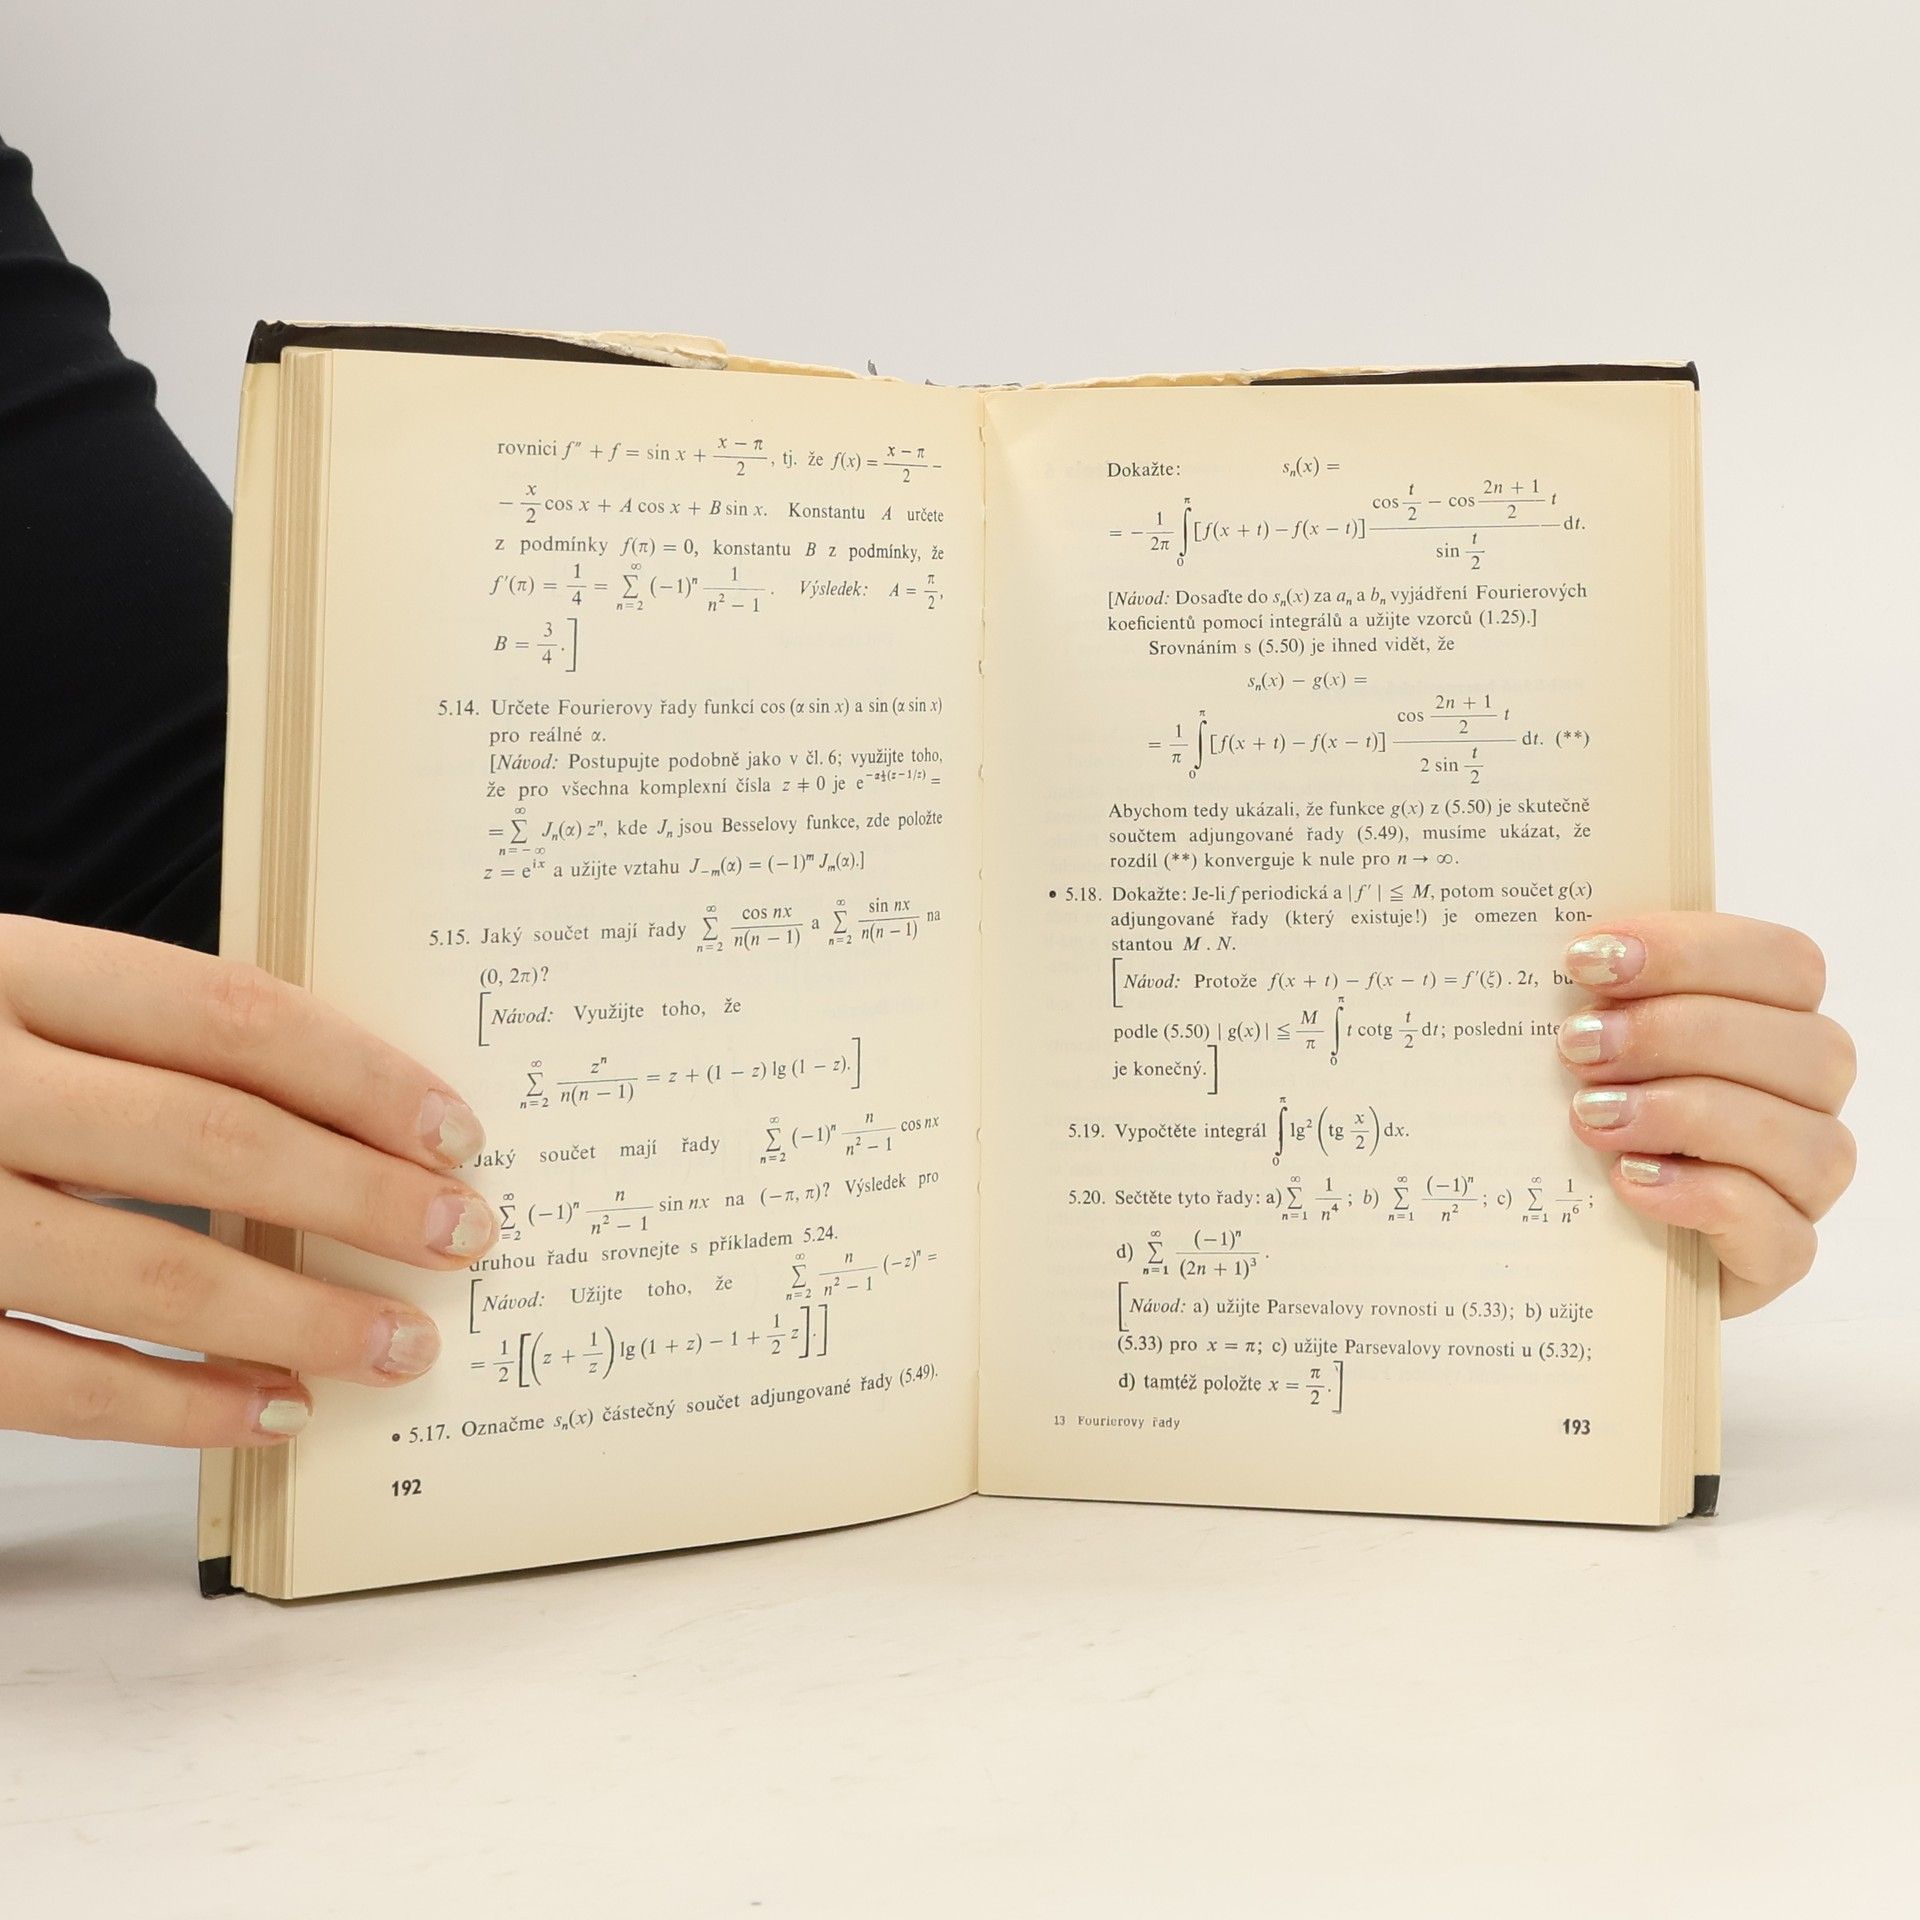 rovnici f″ + f = sin x + (x − π)/2, tj. že f(x) = (x − π)/2 −
− x/2 cos x + A cos x + B sin x. Konstantu A určete
z podmínky f(π) = 0, konstantu B z podmínky, že
f′(π) = 1/4 = ∑_{n=2}^{∞} (−1)ⁿ 1/(n² − 1). Výsledek: A = π/2,
B = 3/4.]
5.14. Určete Fourierovy řady funkcí cos (α sin x) a sin (α sin x)
pro reálné α.
[Návod: Postupujte podobně jako v čl. 6; využijte toho,
že pro všechna komplexní čísla z ≠ 0 je e^{−α½(z−1/z)} =
= ∑_{n=−∞}^{∞} Jₙ(α) zⁿ, kde Jₙ jsou Besselovy funkce, zde položte
z = e^{ix} a užijte vztahu J₋ₘ(α) = (−1)ᵐ Jₘ(α).]
5.15. Jaký součet mají řady ∑_{n=2}^{∞} cos nx/(n(n − 1)) a ∑_{n=2}^{∞} sin nx/(n(n − 1)) na
(0, 2π)?
[Návod: Využijte toho, že
∑_{n=2}^{∞} zⁿ/(n(n − 1)) = z + (1 − z) lg (1 − z).]
Jaký součet mají řady ∑_{n=2}^{∞} (−1)ⁿ n/(n² − 1) cos nx
∑_{n=2}^{∞} (−1)ⁿ n/(n² − 1) sin nx na (−π, π)? Výsledek pro
druhou řadu srovnejte s příkladem 5.24.
[Návod: Užijte toho, že ∑_{n=2}^{∞} n/(n² − 1) (−z)ⁿ =
= 1/2 [(z + 1/z) lg (1 + z) − 1 + 1/2 z].]
• 5.17. Označme sₙ(x) částečný součet adjungované řady (5.49).
192
Dokažte: sₙ(x) =
= − 1/2π ∫₀^π [f(x + t) − f(x − t)] (cos t/2 − cos (2n + 1)/2 t)/(sin t/2) dt.
[Návod: Dosaďte do sₙ(x) za aₙ a bₙ vyjádření Fourierových
koeficientů pomocí integrálů a užijte vzorců (1.25).]
Srovnáním s (5.50) je ihned vidět, že
sₙ(x) − g(x) =
= 1/π ∫₀^π [f(x + t) − f(x − t)] (cos (2n + 1)/2 t)/(2 sin t/2) dt. (**)
Abychom tedy ukázali, že funkce g(x) z (5.50) je skutečně
součtem adjungované řady (5.49), musíme ukázat, že
rozdíl (**) konverguje k nule pro n → ∞.
• 5.18. Dokažte: Je-li f periodická a |f′| ≦ M, potom součet g(x)
adjungované řady (který existuje!) je omezen kon-
stantou M . N.
[Návod: Protože f(x + t) − f(x − t) = f′(ξ) . 2t,
podle (5.50) |g(x)| ≦ M/π ∫₀^π t cotg t/2 dt; poslední
je konečný.]
5.19. Vypočtěte integrál ∫₀^π lg² (tg x/2) dx.
5.20. Sečtěte tyto řady: a) ∑_{n=1}^{∞} 1/n⁴; b) ∑_{n=1}^{∞} (−1)ⁿ/n²; c) ∑_{n=1}^{∞} 1/n⁶;
d) ∑_{n=1}^{∞} (−1)ⁿ/(2n + 1)³.
[Návod: a) užijte Parsevalovy rovnosti u (5.33); b) užijte
(5.33) pro x = π; c) užijte Parsevalovy rovnosti u (5.32);
d) tamtéž položte x = π/2.]
13 Fourierovy řady
193